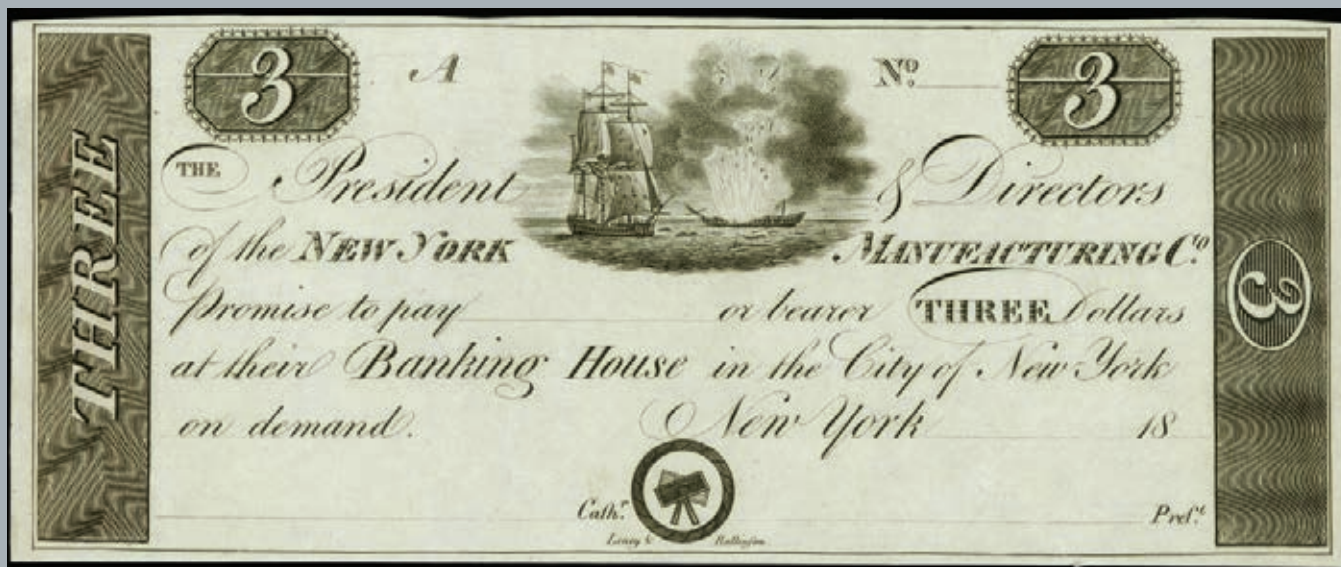 THREE
3 A Nº 3
THE President & Directors
of the NEW YORK MANUFACTURING Cº
Promise to pay or bearer THREE Dollars
at their Banking House in the City of New York
on demand. New York 18
3
Cashʳ. Presᵗ.
Leney & Rollinson